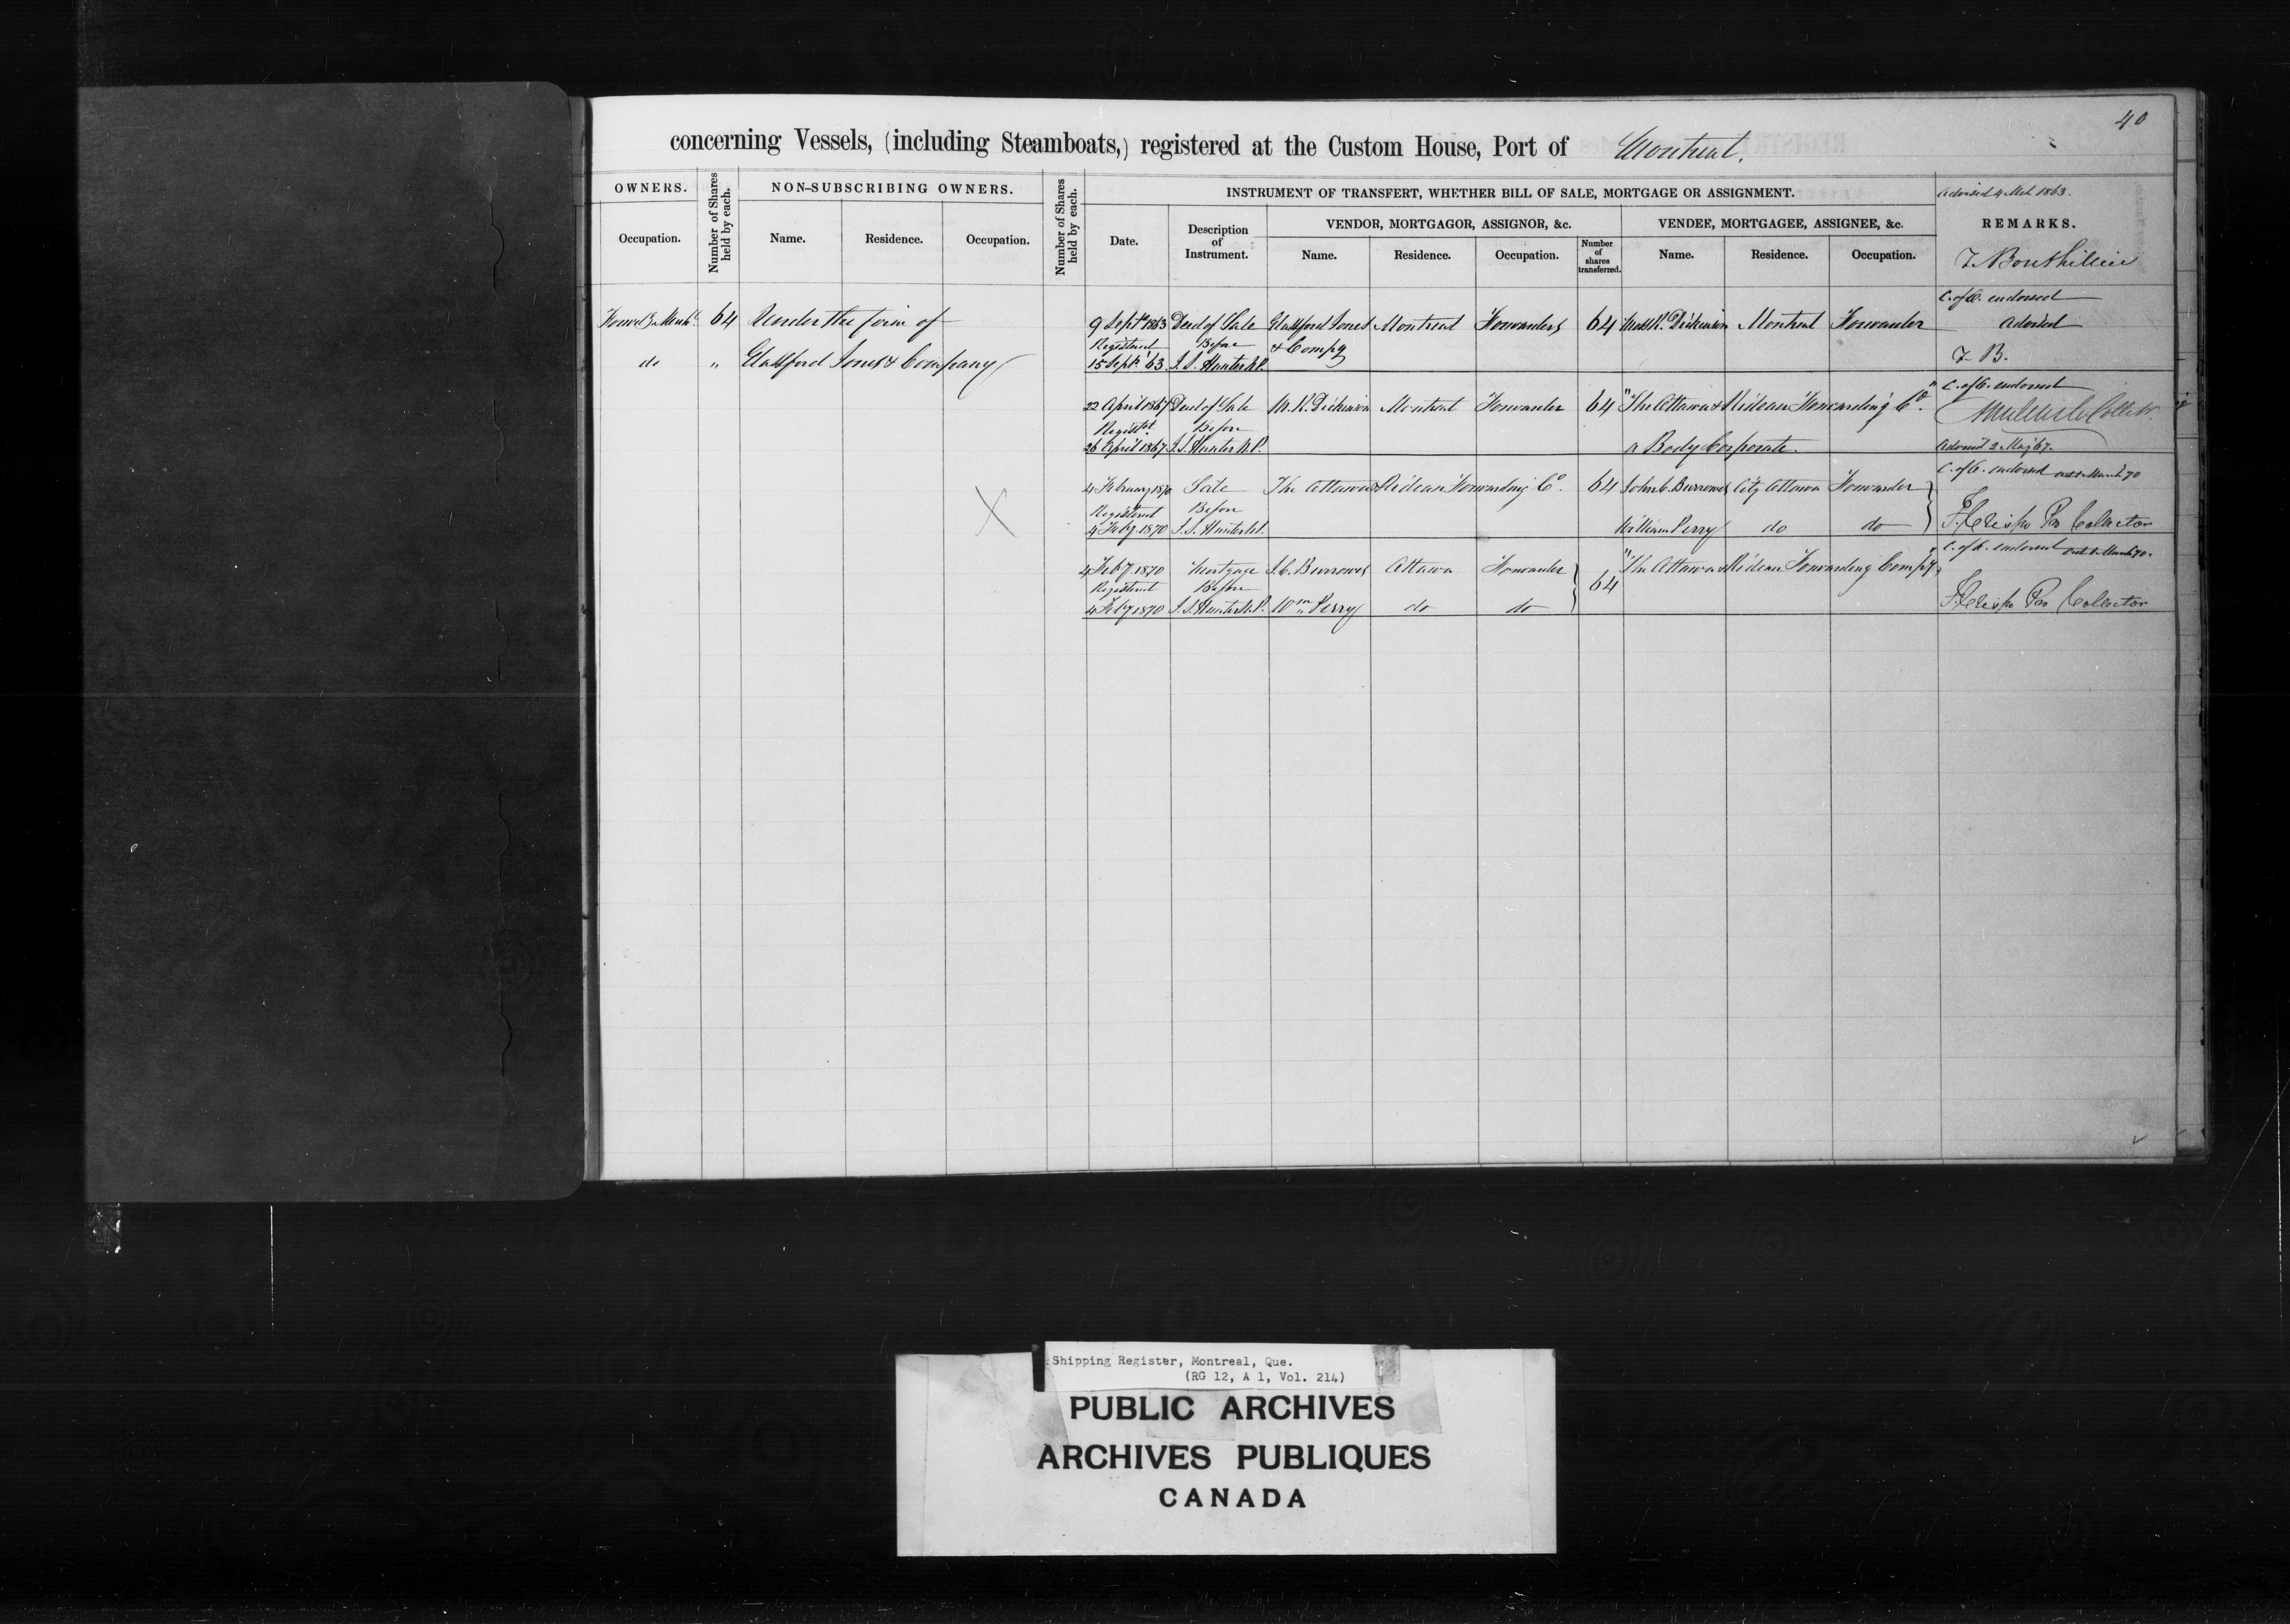 40
concerning Vessels, (including Steamboats,) registered at the Custom House, Port of Montreal.
OWNERS.
Number of Shares held by each.
NON-SUBSCRIBING OWNERS.
Number of Shares held by each.
INSTRUMENT OF TRANSFERT, WHETHER BILL OF SALE, MORTGAGE OR ASSIGNMENT.
Advised 4 Mch 1863.
REMARKS.
Occupation.
Name.
Residence.
Occupation.
Date.
Description of Instrument.
VENDOR, MORTGAGOR, ASSIGNOR, &c.
VENDEE, MORTGAGEE, ASSIGNEE, &c.
Name.
Residence.
Occupation.
Number of shares transferred.
Name.
Residence.
Occupation.
T. Bouthillier
C. of O. endorsed
64 Under the firm of
9 Septr 1863 Deed of Sale Glassford Jones Montreal Forwarders 64 Dickinson Montreal Forwarder Advised
Registered Before & Compy
do " Glassford Jones & Company
15 Septr '63 J.S. Hunter N.P. T. B.
22 April 1867 Deed of Sale M. K. Dickinson Montreal Forwarder 64 "The Ottawa & Rideau Forwarding Co." C. of O. endorsed
Registd Before
26 April 1867 J.S. Hunter N.P. a Body Corporate. Advised 2 May 67.
4 February 1870 Sale The Ottawa & Rideau Forwarding Co. 64 John C. Burrowes City Ottawa Forwarder C. of O. endorsed March 70
Registered Before
4 Feby 1870 J.S. Hunter N.P. William Perry do do Pro Collector
4 Feby 1870 Mortgage J.C. Burrowes Ottawa Forwarder 64 "The Ottawa & Rideau Forwarding Compy" C. of O. endorsed March 70.
Registered Before
4 Feby 1870 J.S. Hunter N.P. Wm Perry do do Pro Collector
Shipping Register, Montreal, Que.
(RG 12, A 1, Vol. 214)
PUBLIC ARCHIVES
ARCHIVES PUBLIQUES
CANADA